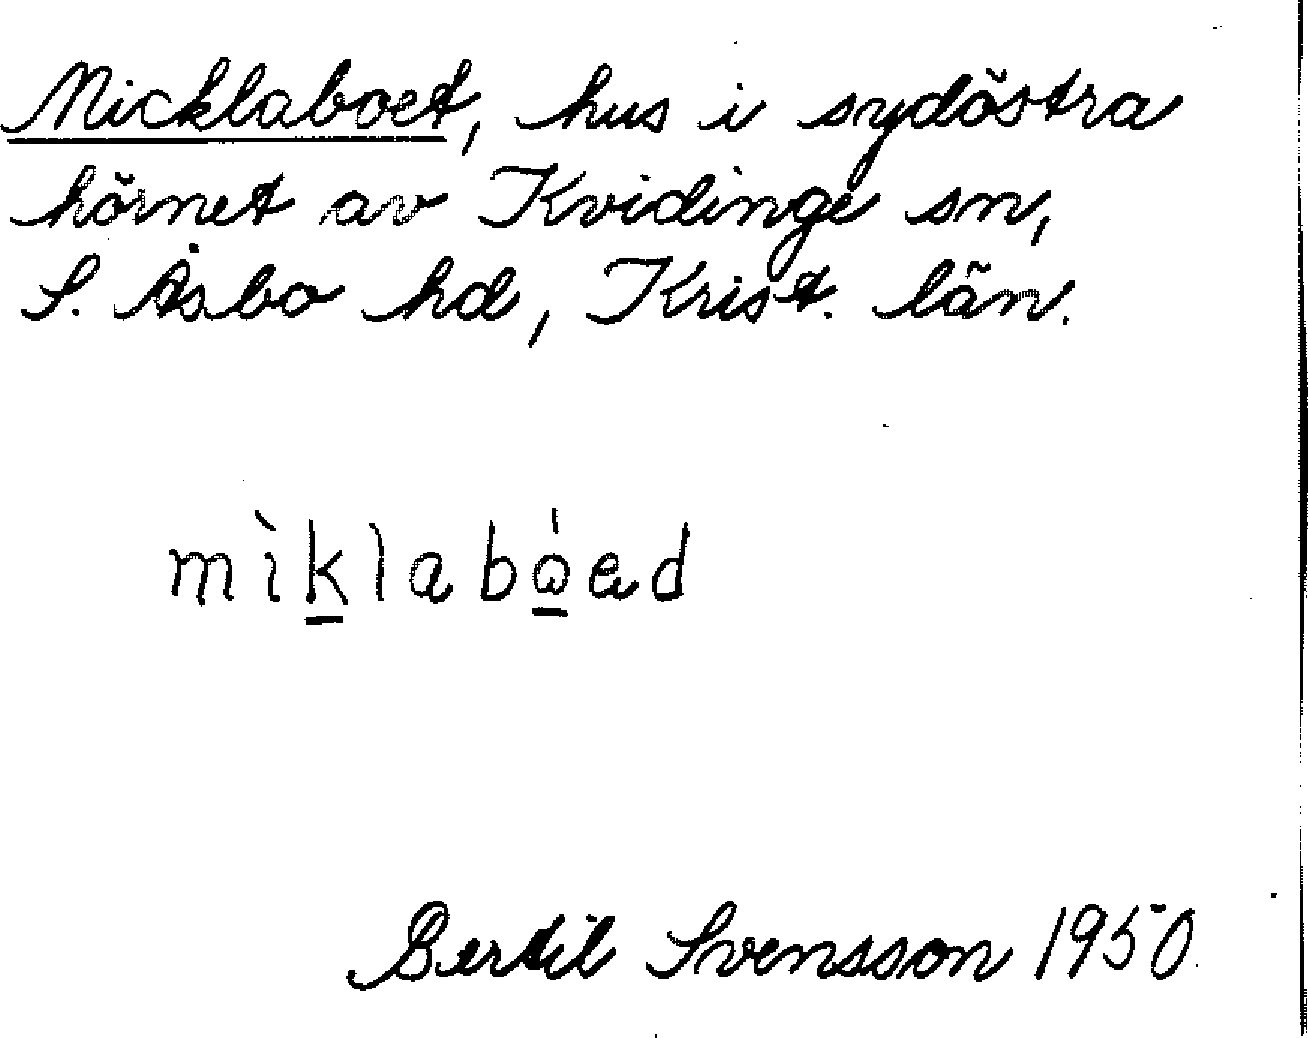 Micklaboet, hus i sydöstra
hörnet av Kvidinge sn,
S. Åsbo hd, Krist. län.
mìklabóed
Bertil Svensson 1950.